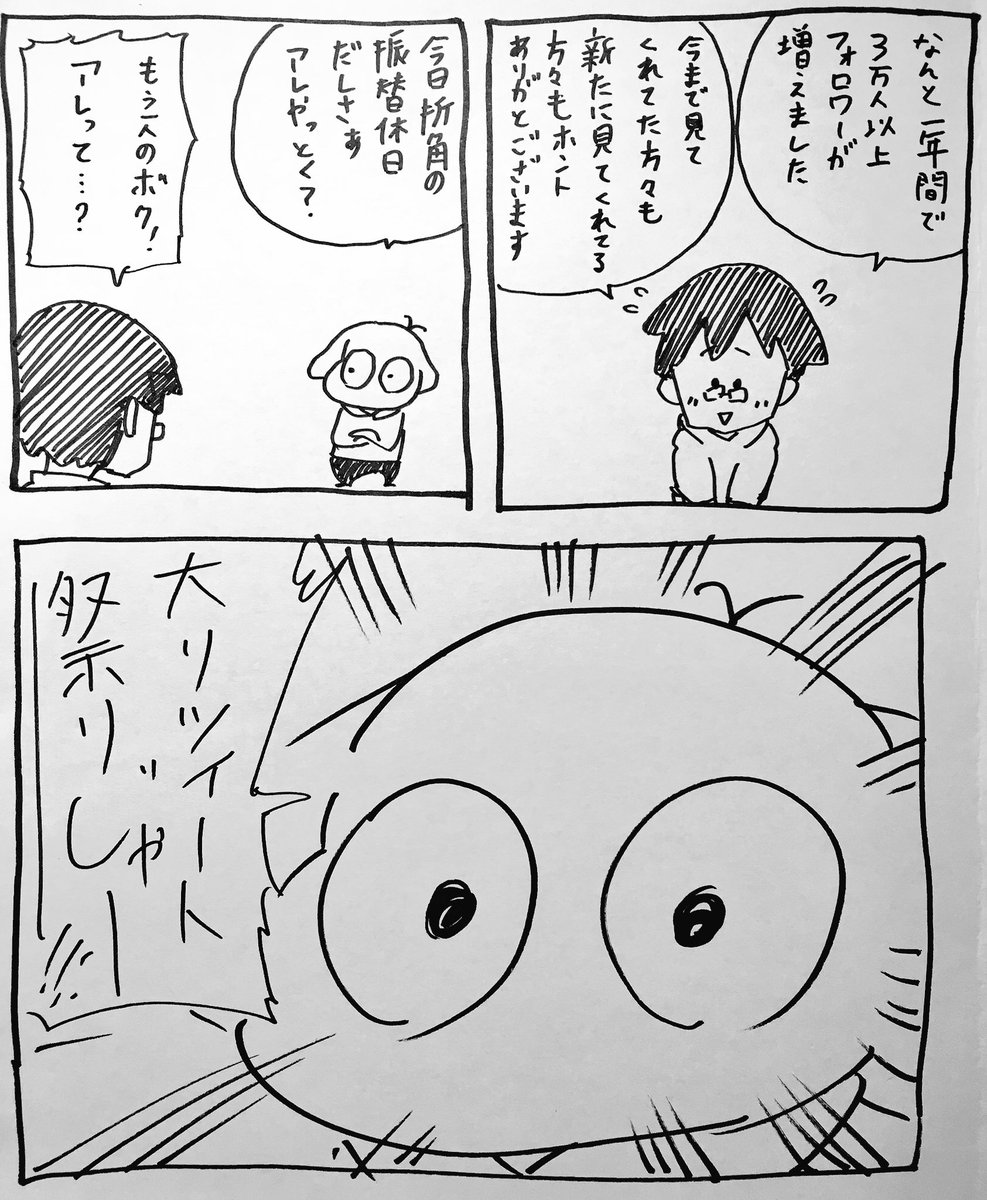 なんと一年間で
3万人以上
フォロワーが
増えました
今まで見て
くれてた方々も
新たに見てくれてる
方々もホント
ありがとございます
今日折角の
振替休日
だしさぁ
アレやっとく?
もう一人のボク!
アレって…?
大リツイート
祭りじゃー